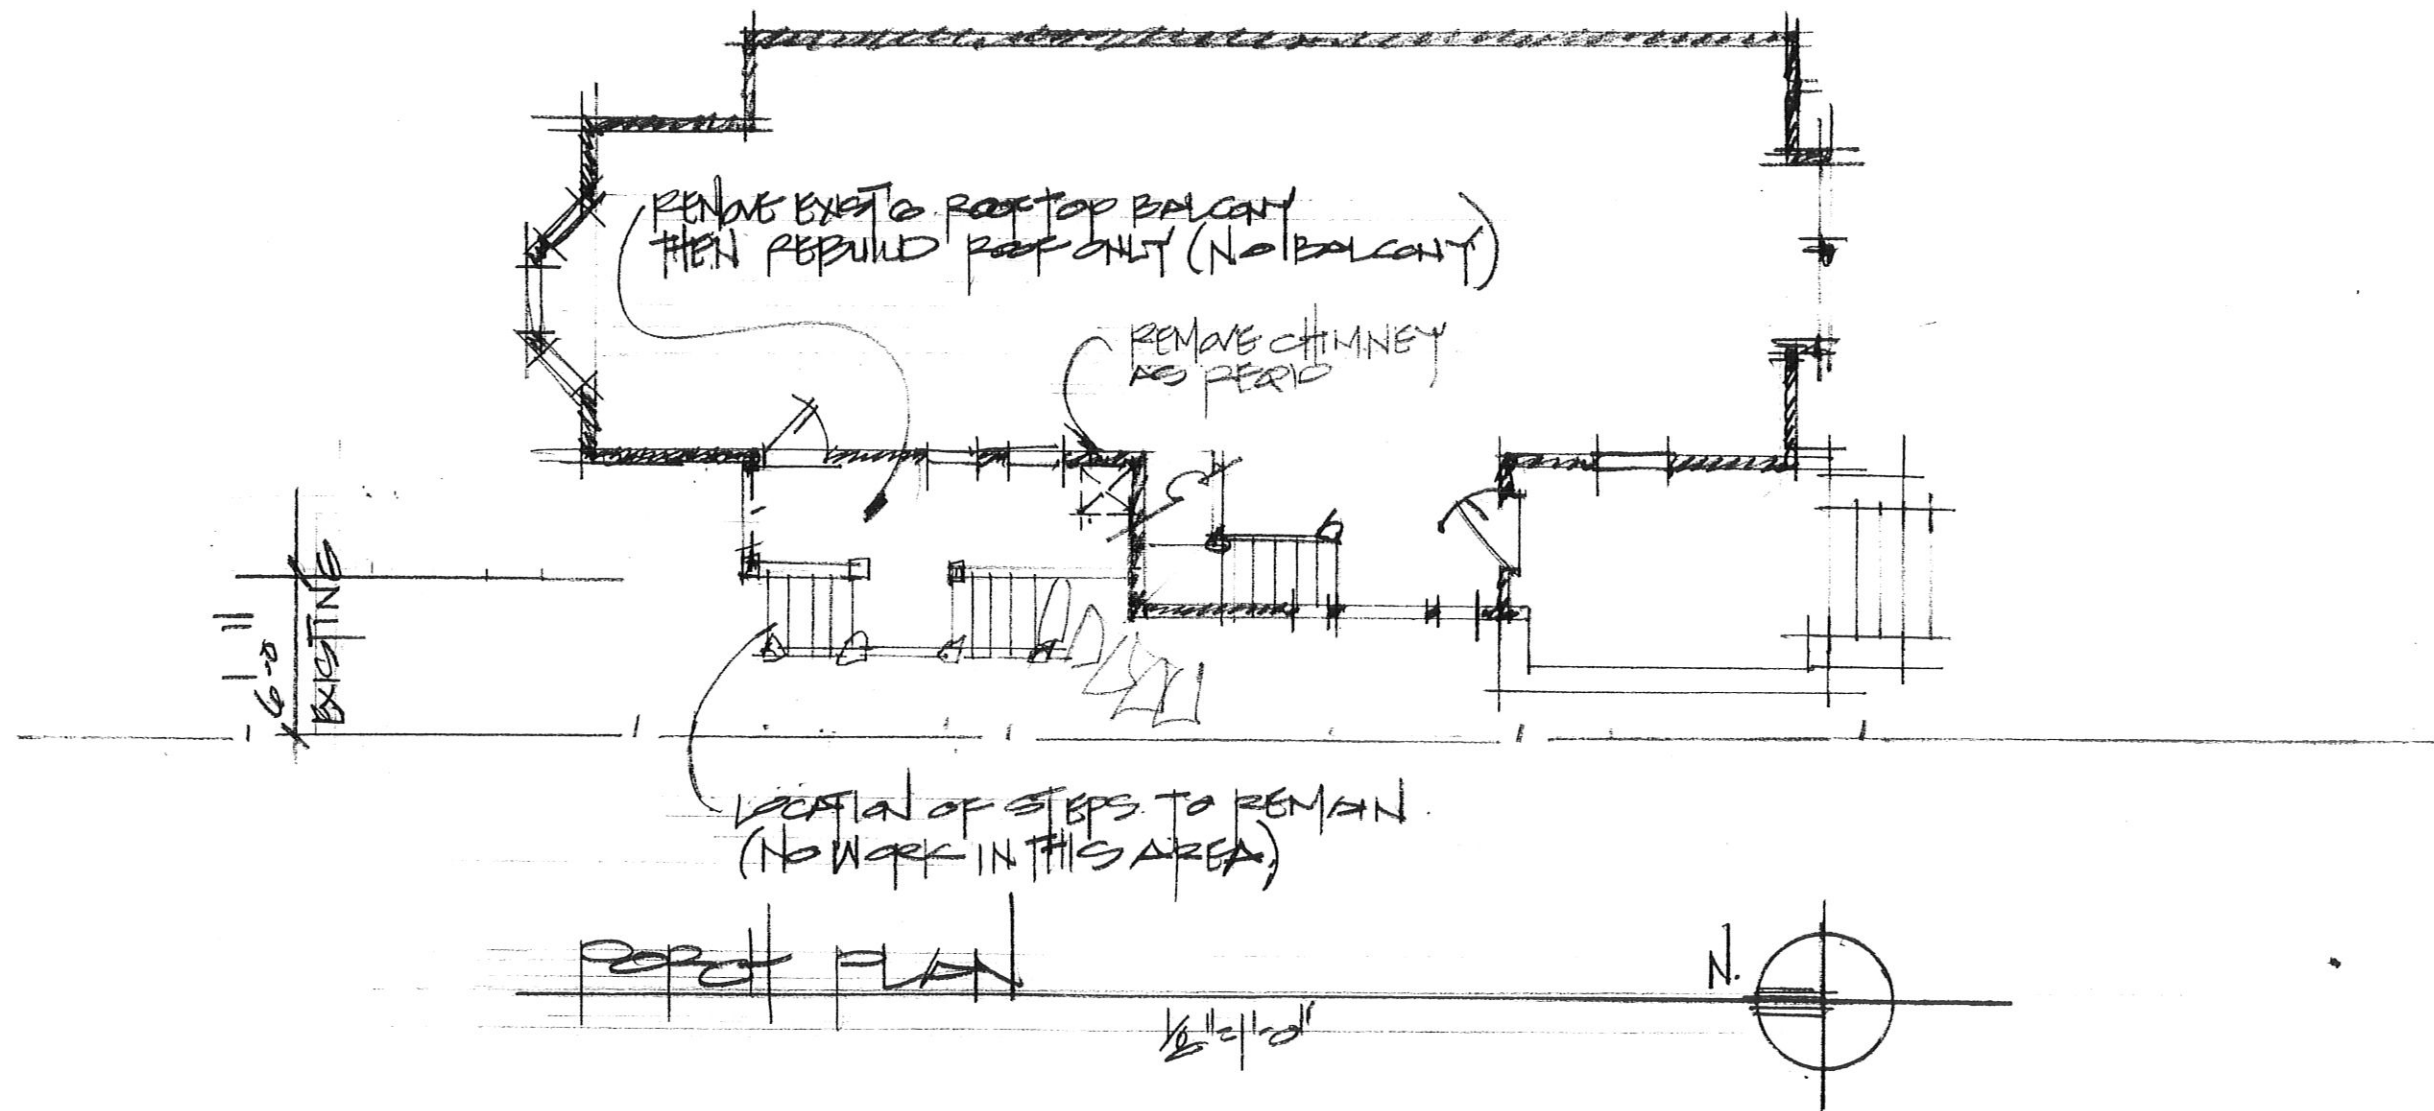 REMOVE EXIST'G ROOFTOP BALCONY
THEN REBUILD ROOF ONLY (NO BALCONY)
REMOVE CHIMNEY
AS REQ'D
6'-0"
EXISTING
LOCATION OF STEPS TO REMAIN.
(NO WORK IN THIS AREA)
PORCH PLAN
1/8"=1'-0"
N.